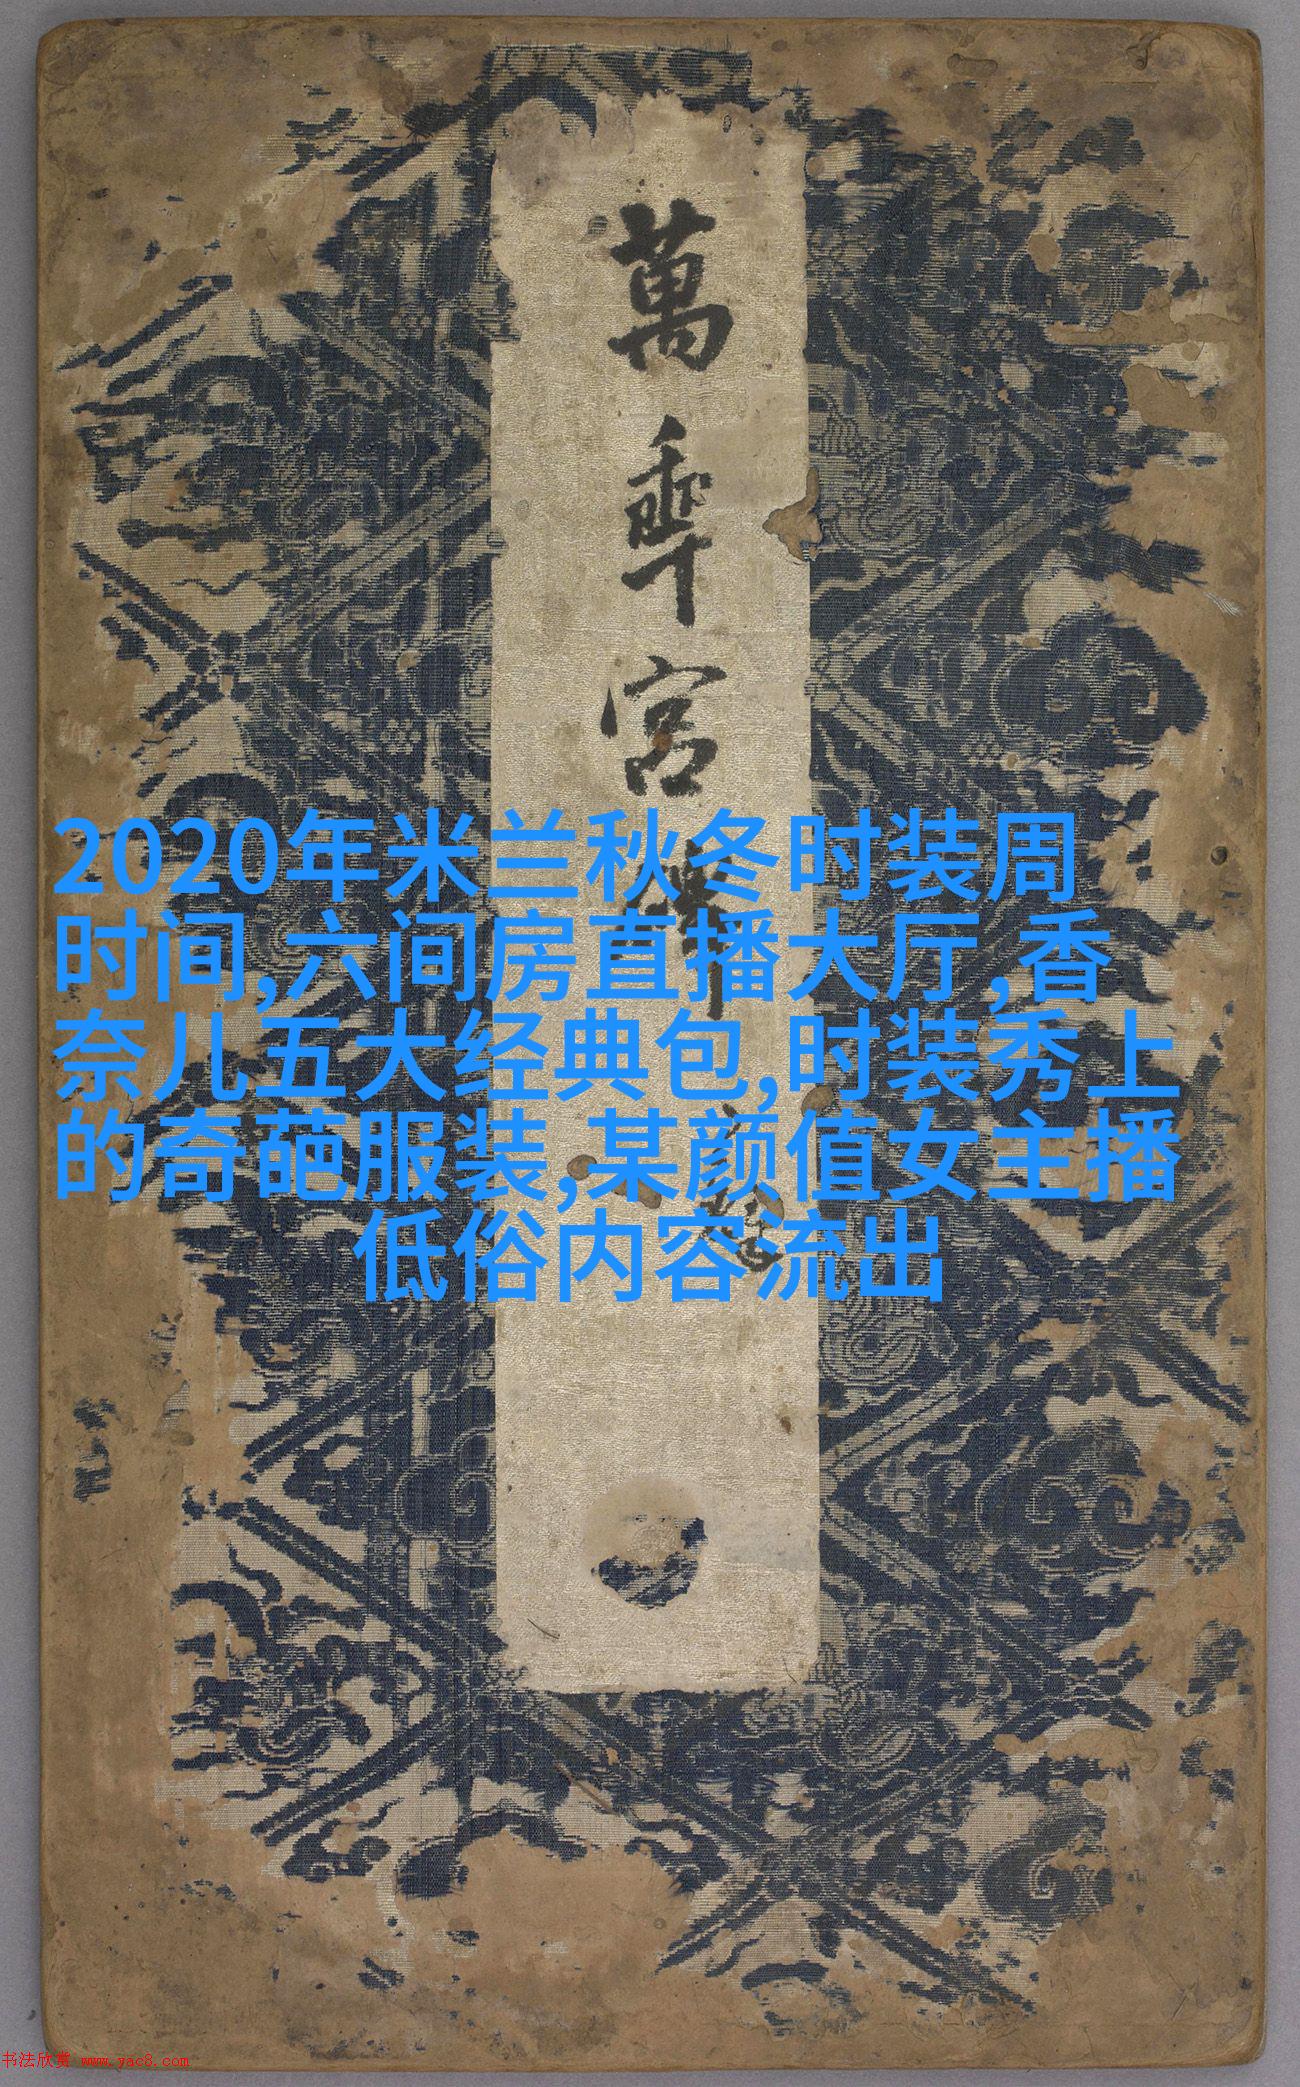 萬秊宮碑
2020年米兰秋冬时装周
时间,六间房直播大厅,香
奈儿五大经典包,时装秀上
的奇葩服装,某颜值女主播
低俗内容流出
书法欣赏 www.yac8.com